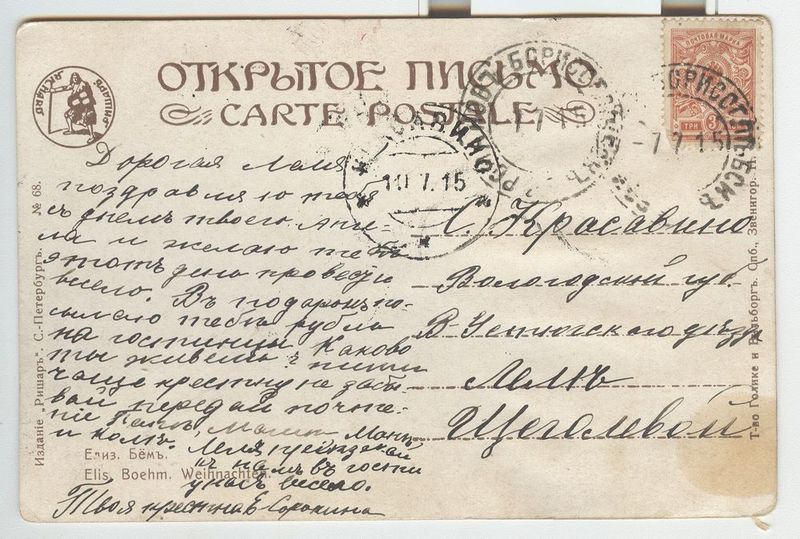 РИШАРЪ
ОТКРЫТОЕ ПИСЬМО
CARTE POSTALE
ПОЧТОВАЯ МАРКА
ТРИ 3
БОРИСОГЛѢБСКЪ
-7 7 15
КРАСАВИНО
10.7.15
Дорогая Леля
поздравляю тебя
съ днемъ твоего Анге-
ла и желаю тебѣ
этотъ день провести
весело. Въ подарокъ по-
сылаю тебѣ рубль
на гостинцы. Каково
ты живешь? пиши
чаще крестну не забы-
вай передай почте-
ніе Папѣ, Мамѣ
и Колѣ.
Леля приѣзжай
къ намъ въ гости
у насъ весело.
Твоя крестна Е Сорокина
С. Красавино
Вологодской губ.
В-Устюгскаго уѣзда
Лелѣ
Щеголевой
Елиз. Бёмъ.
Elis. Boehm. Weihnachten.
Изданіе „Ришаръ“. С.-Петербургъ. № 68.
Т-во Голике и Вильборгъ. Спб., Звенигор.